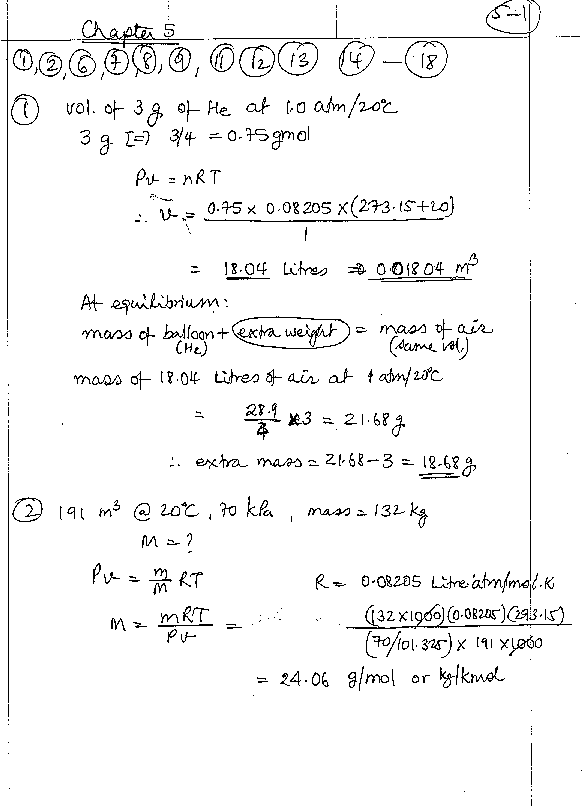 5-1
Chapter 5
①, ②, ⑥, ⑦, ⑧, ⑨, ⑪ ⑫ ⑬ ⑭ — ⑱
① vol. of 3 g of He at 1.0 atm/20°C
3 g [=] 3/4 = 0.75 gmol
Pv = nRT
∴ v = 0.75 x 0.08205 x (273.15+20)
1
= 18.04 Litres ⇒ 0.01804 m³
At equilibrium:
mass of balloon + extra weight = mass of air
(He) (same vol.)
mass of 18.04 Litres of air at 1 atm/20°C
= 28.9/4 x 3 = 21.68 g
∴ extra mass = 21.68 - 3 = 18.68 g
② 191 m³ @ 20°C, 70 kPa, mass = 132 kg
M = ?
Pv = m/M RT R = 0.08205 Litre·atm/mol.K
M = mRT/Pv = (132 x 1000)(0.08205)(293.15)
(70/101.325) x 191 x 1000
= 24.06 g/mol or kg/kmol